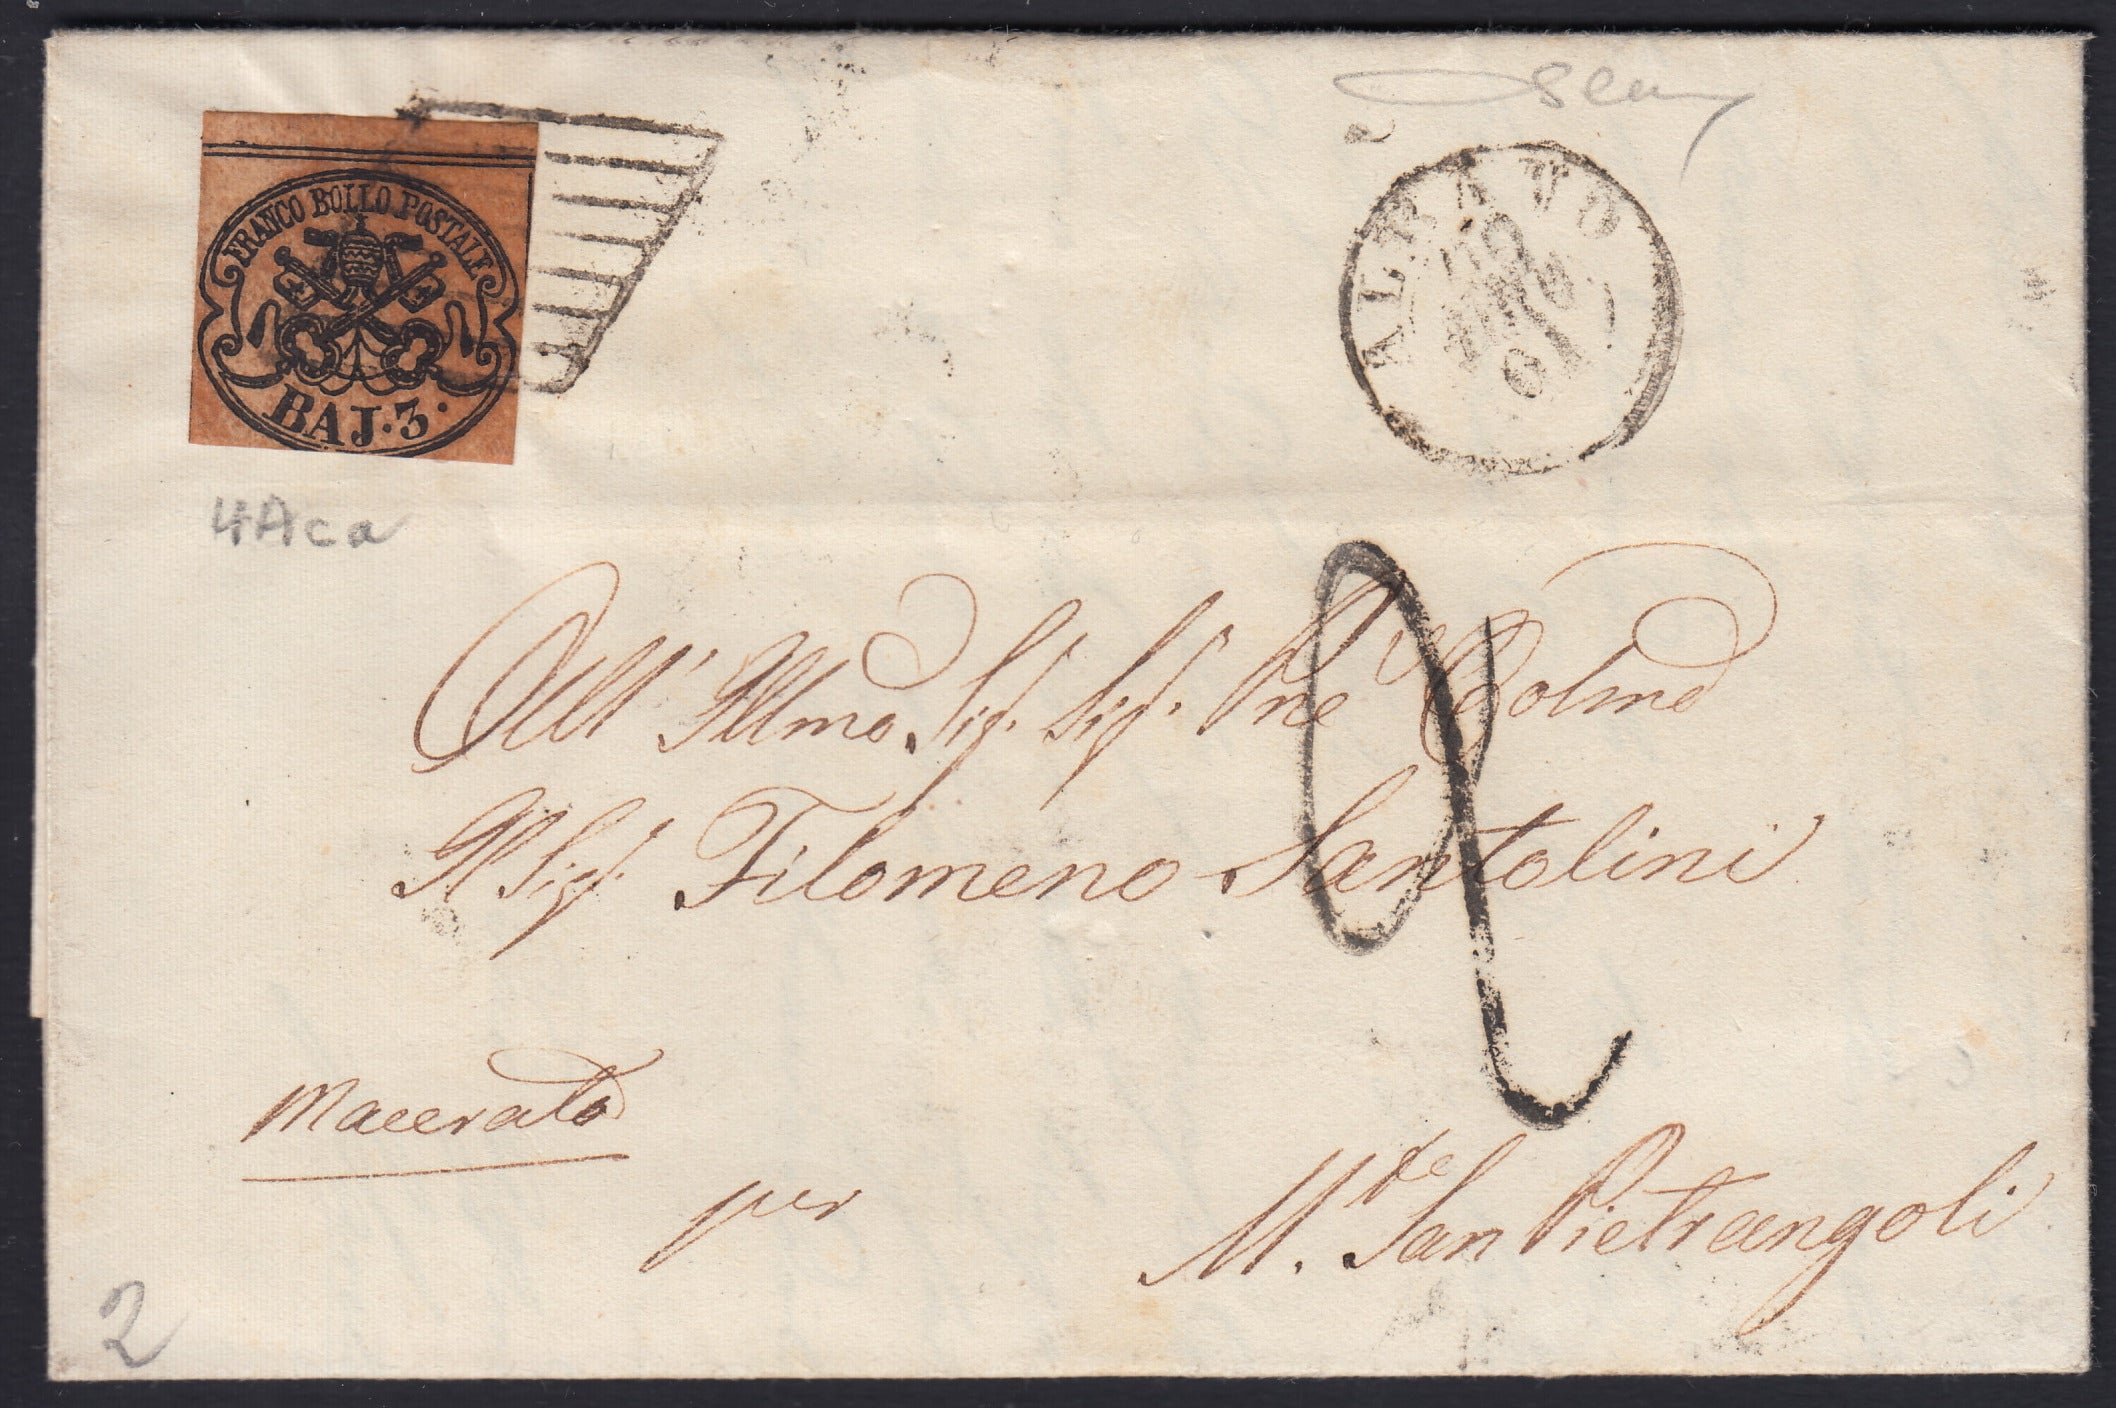 FRANCO BOLLO POSTALE
BAJ. 3.
ALTRAVO
4Aca
All' Illmo Sig. Sig. Pne Colmo
Il Sigr. Filomeno Santolini
Macerata
per
M.te San Pietrangoli
2